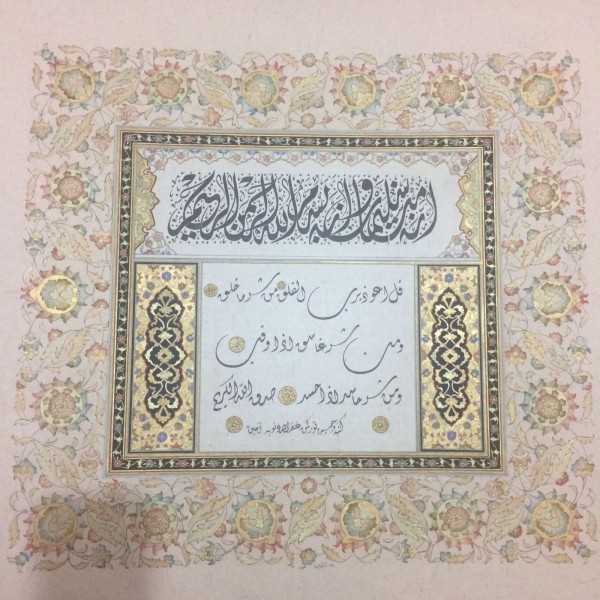 انه من سليمان وانه بسم الله الرحمن الرحيم
قل اعوذ برب الفلق من شر ما خلق
ومن شر غاسق اذا وقب
ومن شر حاسد اذا حسد صدق الله الكريم
كتبه غفر ذنوبه آمين